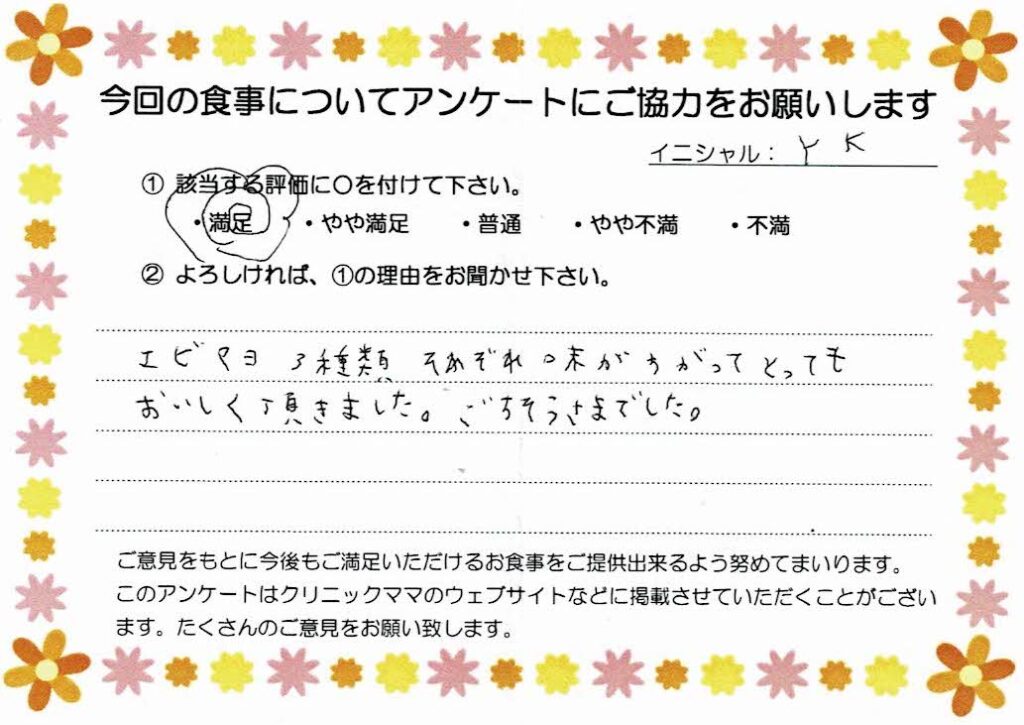 今回の食事についてアンケートにご協力をお願いします
イニシャル： Y K
① 該当する評価に〇を付けて下さい。
・満足 ・やや満足 ・普通 ・やや不満 ・不満
② よろしければ、①の理由をお聞かせ下さい。
エビマヨ 3種類 それぞれ味がちがってとっても
おいしく頂きました。ごちそうさまでした。
ご意見をもとに今後もご満足いただけるお食事をご提供出来るよう努めてまいります。
このアンケートはクリニックママのウェブサイトなどに掲載させていただくことがござい
ます。たくさんのご意見をお願い致します。